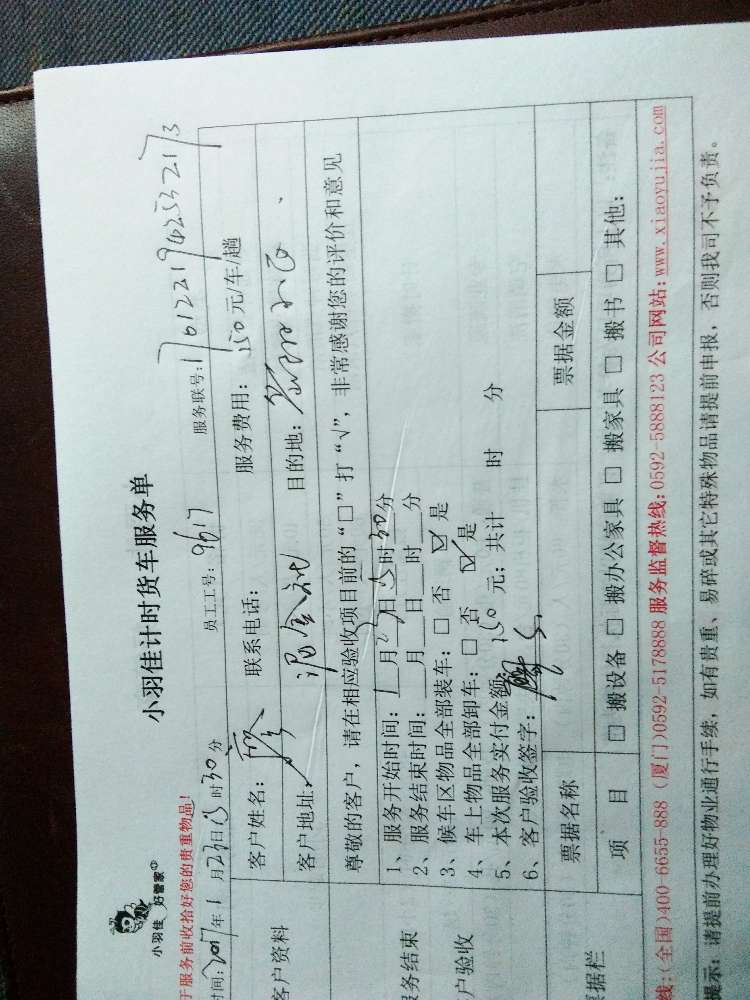 小羽佳 好管家
小羽佳计时货车服务单
于服务前收拾好您的贵重物品!
时间:2017年1月23日15时30分 员工工号:9617 服务联号:1701221942532173
客户资料 客户姓名: 联系电话: 服务费用:150元/车/趟
客户地址: 目的地:
尊敬的客户，请在相应验收项目前的“□”打“√”，非常感谢您的评价和意见
服务结束
客户验收
1、服务开始时间:1月23日15时30分
2、服务结束时间: 月 日 时 分
3、候车区物品全部装车:□ 否 ☑ 是
4、车上物品全部卸车:□ 否 ☑ 是
5、本次服务实付金额:150元; 共计 时 分
6、客户验收签字:
票据栏 票据名称 票据金额
项 目 □ 搬设备 □ 搬办公家具 □ 搬家具 □ 搬书 □ 其他:
线:(全国)400-6655-888 (厦门)0592-5178888 服务监督热线:0592-5888123 公司网站:www.xiaoyujia.com
提示: 请提前办理好物业通行手续，如有贵重、易碎或其它特殊物品请提前申报，否则我司不予负责。